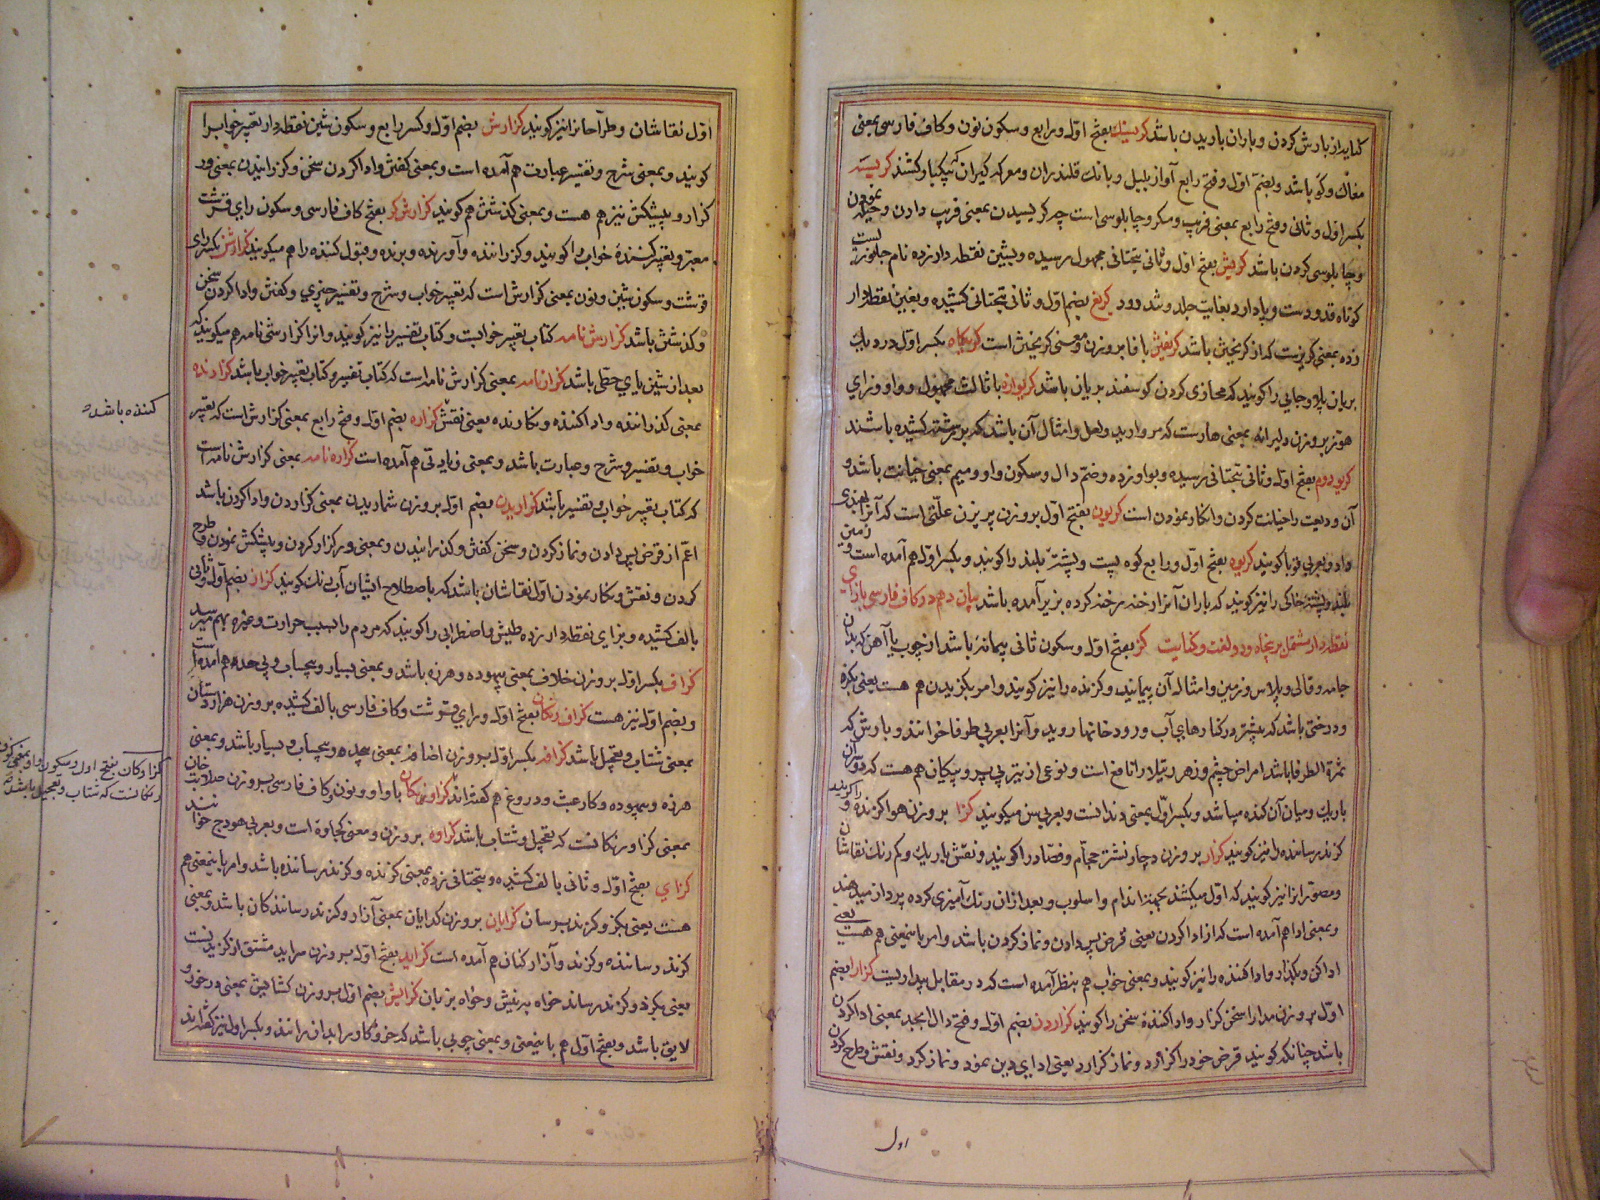 کنایه از بارش کردن و باران باریدن باشد کریسنک بفتح اول و رابع و سکون نون و کاف فارسی بمعنی
مغاک و کو باشد و بضم اول و فتح رابع آواز بلبل و بانک قلندران و معرکه کیران کشند کریسه
بکسر اول و ثانی و فتح رابع بمعنی فریب و مکر و چاپلوسی است چه کریسیدن بمعنی فریب دادن و حیله نمودن
و چاپلوسی کردن باشد کریش بفتح اول و ثانی بتحتانی مجهول رسیده و بشین نقطه دار زده نام جانوریست
کوتاه قد و دست و پا دارد بغایت جلد و تند رود کریغ بضم اول و ثانی بتحتانی کشیده و بغین نقطه دار
زده بمعنی کریزست که از کریختن باشد کریفتن با فا بر وزن و معنی کریختن است کریکاه بکسر اول
بریان پلاو جایی را کویند که مجازی کردن کوسفند بریان باشد کریوازه با ثالث مجهول و واو و زای
هوز بر وزن دلیرانه بمعنی هارست که مروارید و لعل و امثال آن باشد که بر سر رشته کشیده باشند
کریودوم بفتح اول و ثانی بتحتانی رسیده و بواو زده و ضم دال و سکون واو و میم بمعنی خیانت باشد و
آن ودیعت را خیانت کردن و انکار نمودن است کریون بفتح اول بر وزن پر یزن علتی است که آنرا بهندی
داد و بعربی قوبا کویند کریوه بفتح اول و رابع کوه پست و پشته بلند را کویند و بکسر اول هم آمده است و زمین
بلند و پشته خاکی را نیز کویند که باران آنرا رخنه رخنه کرده بزیر آمده باشد بیان دهم در کاف فارسی با زای
نقطه دار مشتمل بر پنجاه و دو لغت و کنایت کز بفتح اول و سکون ثانی پیمانه باشد از چوب یا آهن که بدان
جامه و قالی و پلاس و زمین و امثال آن پیمایند و کزنده را نیز کویند و امر بکزیدن هم هست یعنی بکز
و درختی باشد که بیشتر در کنارهای آب و رودخانها روید و آنرا بعربی طرفا خوانند و بارش که
ثمرة الطرفا باشد امراض چشم و زهر رتیلا را نافع است و نوعی از تیر بی پر و پیکان هم هست که دو سر آن
باریک و میان آن کنده میباشد و بکسر اول بمعنی دندانست و بعربی سن میکویند کزا بر وزن هوا کزنده و
کزند رساننده را نیز کویند کزار بر وزن دچار نشتر حجام و فصاد را کویند و نقش باریک و کم رنک نقاشان
و مصوران را نیز کویند که اول میکشند بجهة اندام و اسلوب و بعد از آن رنک آمیزی کرده پرداز میدهند
و بمعنی ادا هم آمده است که از ادا کردن یعنی قرض پس دادن و نماز کردن باشد و امر باینمعنی هم هست یعنی
ادا کن و بکذار و ادا کننده را نیز کویند و بمعنی خواب هم بنظر آمده است که در مقابل بیداریست کزارا بضم
اول بر وزن مدارا سخن کزار و ادا کنندهٔ سخن را کویند کزاردن بضم اول و فتح دال ابجد بمعنی ادا کردن
باشد چنانکه کویند قرض خود را کزارد و نماز کزارد یعنی ادای دین نمود و نماز کرد و نقش و طرح کردن
اول
اول نقاشان و طراحان را نیز کویند کزارش بضم اول و کسر رابع و سکون شین نقطه دار تعبیر خواب را
کویند و بمعنی شرح و تفسیر عبارت هم آمده است و بمعنی کفتن و ادا کردن سخن و کزرانیدن بمعنی ور
کزار و پیشکش نیز هم هست و بمعنی کذشتن هم کویند کزارش کر بفتح کاف فارسی و سکون رای قرشت
معبر و تعبیر کنندهٔ خواب را کویند و کزراننده و آورنده و برنده و قبول کننده را هم میکویند کزارشن بکسر رای
قرشت و سکون شین و نون بمعنی کزارش است که تعبیر خواب و شرح و تفسیر چیزی و کفتن و ادا کردن سخن
و کذشتن باشد کزارش نامه کتاب تعبیر خوابست و کتاب تفسیر را نیز کویند و آنرا کزارشی نامه هم میکویند که
بعد از شین یای حطی باشد کزار نامه بمعنی کزارش نامه است که کتاب تفسیر و کتاب تعبیر خواب باشد کزارنده
بمعنی کذراننده و ادا کننده و نکارنده یعنی نقش کزاره بضم اول و فتح رابع بمعنی کزارش است که تعبیر
کننده باشد
خواب و تفسیر و شرح و عبارت باشد و بمعنی زیادتی هم آمده است کزاره نامه بمعنی کزارش نامه است
که کتاب تعبیر خواب و تفسیر باشد کزاریدن بضم اول بر وزن شماریدن بمعنی کزاردن و ادا کردن باشد
اعم از قرض پس دادن و نماز کردن و سخن کفتن و کذرانیدن و بمعنی ور کزار کردن و پیشکش نمودن و طرح
کردن و نقش و نکار نمودن اول نقاشان باشد که باصطلاح ایشان آب رنک کویند کزاز بضم اول و ثانی
بالف کشیده و بزای نقطه دار زده طپش و اضطرابی را کویند که مردم را بسبب حرارت و غیره بهم میرسد
کزاف بکسر اول بر وزن خلاف بمعنی بیهوده و هرزه باشد و بمعنی بسیار و بیحساب و بی حد هم آمده است
و بضم اول نیز هست کزاف رنکان بفتح اول و رای قرشت و کاف فارسی بالف کشیده بر وزن هزار دستان
بمعنی شتاب و تعجیل باشد کزافه بکسر اول بر وزن اضافه بمعنی بیحد و بیحساب و بسیار باشد و بمعنی
هرزه و بیهوده و کار عبث و دروغ هم کفته اند کزاورنکان با واو و نون و کاف فارسی بر وزن
کزاورکان بفتح اول و سکون واو بمعنی کزاو
رنکانست که شتاب و تعجیل باشد
بمعنی کزاورنکانست که تعجیل و شتاب باشد کزاوه بر وزن و معنی کجاوه است و بعربی هودج خوانند
کزای بفتح اول و ثانی بالف کشیده و بتحتانی زده بمعنی کزنده و کزند رساننده باشد و امر باینمعنی هم
هست یعنی بکز و کزند برسان کزایان بر وزن کدایان بمعنی آزار و کزند رسانندکان باشد و بمعنی
کزند رساننده و کزند و آزار کنان هم آمده است کزاید بفتح اول بر وزن سراید مشتق از کزیدنست
یعنی بکزد و کزند رساند خواه به نیش و خواه بزبان کزایش بضم اول بر وزن کشایش بمعنی در خور و
لایق باشد و بفتح اول هم باینمعنی و بمعنی چوبی باشد که خر و کاو را بدان رانند و بکسر اول نیز کفته اند